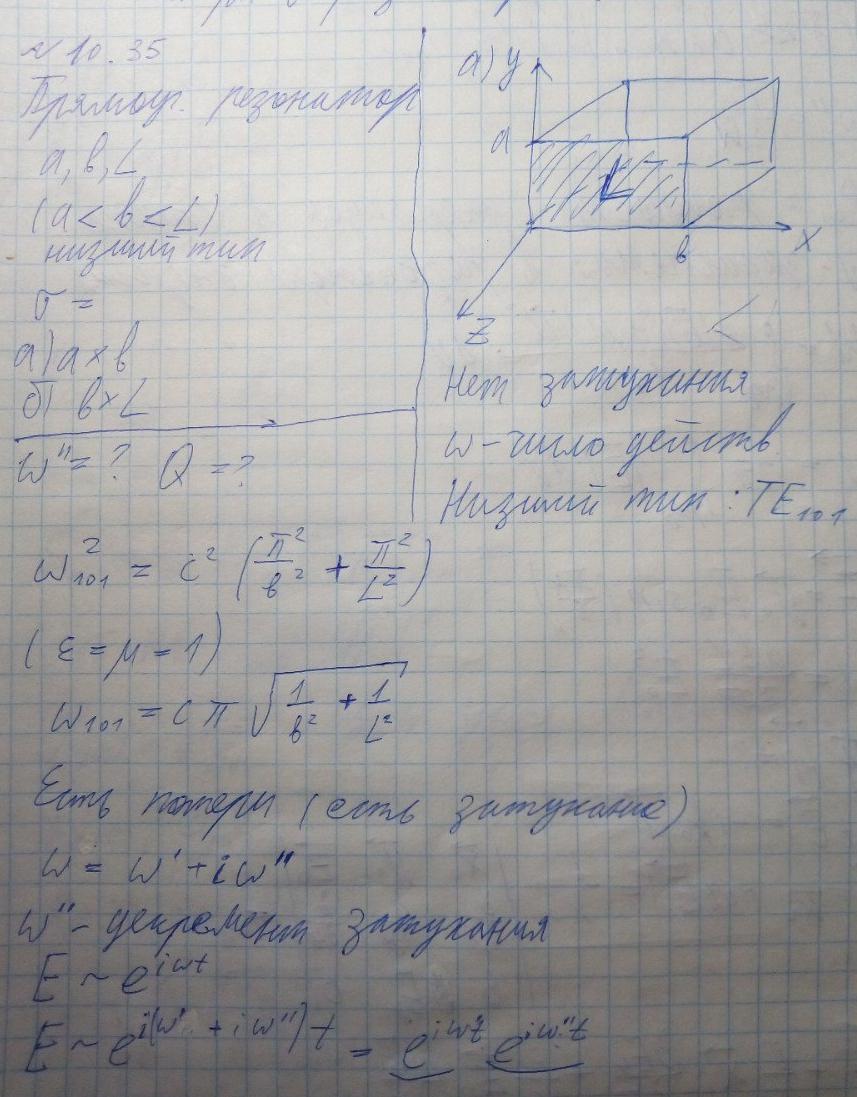 № 10.35
Прямоуг. резонатор
a, b, L
(a < b < L)
низший тип
σ =
а) a × b
б) b × L
ω'' = ? Q = ?
а) y
a
L
b
x
z
<
Нет затухания
ω - число действ
Низший тип: TE₁₀₁
ω²₁₀₁ = c² (π²/b² + π²/L²)
(ε = μ = 1)
ω₁₀₁ = c π √(1/b² + 1/L²)
Есть потери (есть затухание)
ω = ω' + iω''
ω'' - декремент затухания
E ~ e^{iωt}
E ~ e^{i(ω' + iω'')t} = e^{iω't} e^{iω''t}